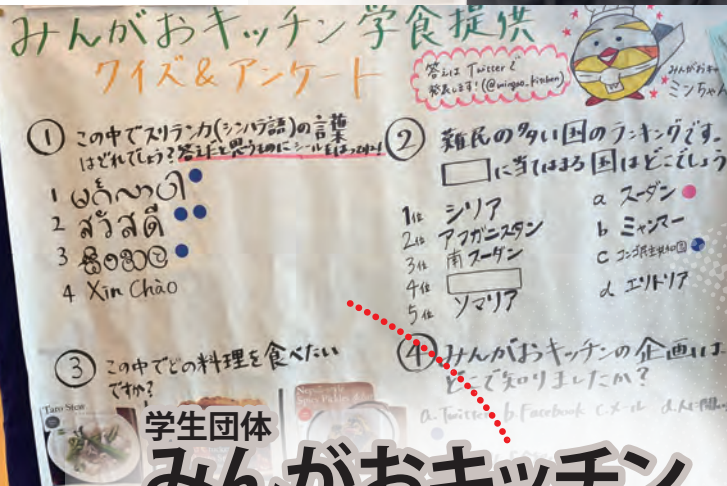 みんがおキッチン学食提供
クイズ&アンケート
答えは Twitterで
発表します!(@mingao_kitchen)
みんがおキッチン
ミンちゃん
① この中でスリランカ(シンハラ語)の言葉
はどれでしょう?答えだと思うものにシールをはってね!
1 မင်္ဂလာပါ
2 สวัสดี
3
4 Xin Chào
② 難民の多い国のランキングです。
□に当てはまる国はどこでしょう
1位 シリア
2位 アフガニスタン
3位 南スーダン
4位
5位 ソマリア
a スーダン
b ミャンマー
c コンゴ民主共和国
d エリトリア
③ この中でどの料理を食べたい
ですか?
Taro Stew
④ みんがおキッチンの企画は
どこで知りましたか?
a. Twitter b. Facebook c. メール d. 人に聞い
学生団体
みんがおキッチン